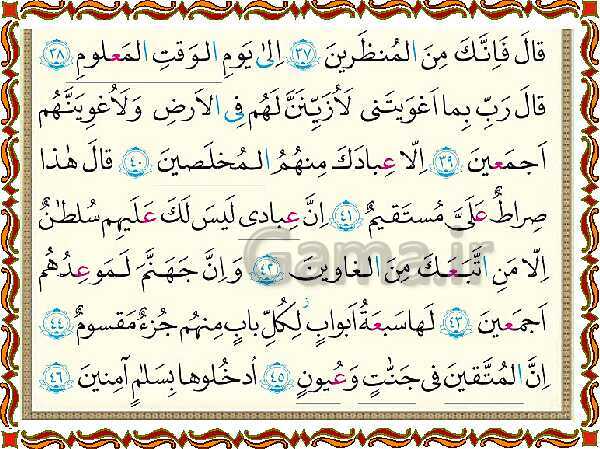 قالَ فَاِنَّكَ مِنَ المُنظَرينَ ٣٧ اِلىٰ يَومِ الوَقتِ المَعلومِ ٣٨
قالَ رَبِّ بِما اَغوَيتَنى لَاُزَيِّنَنَّ لَهُم فِى الاَرضِ وَلَاُغوِيَنَّهُم
اَجمَعينَ ٣٩ اِلّا عِبادَكَ مِنهُمُ المُخلَصينَ ٤٠ قالَ هٰذا
صِراطٌ عَلَىَّ مُستَقيمٌ ٤١ اِنَّ عِبادى لَيسَ لَكَ عَلَيهِم سُلطٰنٌ
اِلّا مَنِ اتَّبَعَكَ مِنَ الغاوينَ ٤٢ وَاِنَّ جَهَنَّمَ لَمَوعِدُهُم
اَجمَعينَ ٤٣ لَها سَبعَةُ اَبوابٍ لِكُلِّ بابٍ مِنهُم جُزءٌ مَقسومٌ ٤٤
اِنَّ المُتَّقينَ فى جَنّٰتٍ وَعُيونٍ ٤٥ اُدخُلوها بِسَلامٍ آمِنينَ ٤٦
Gama.ir